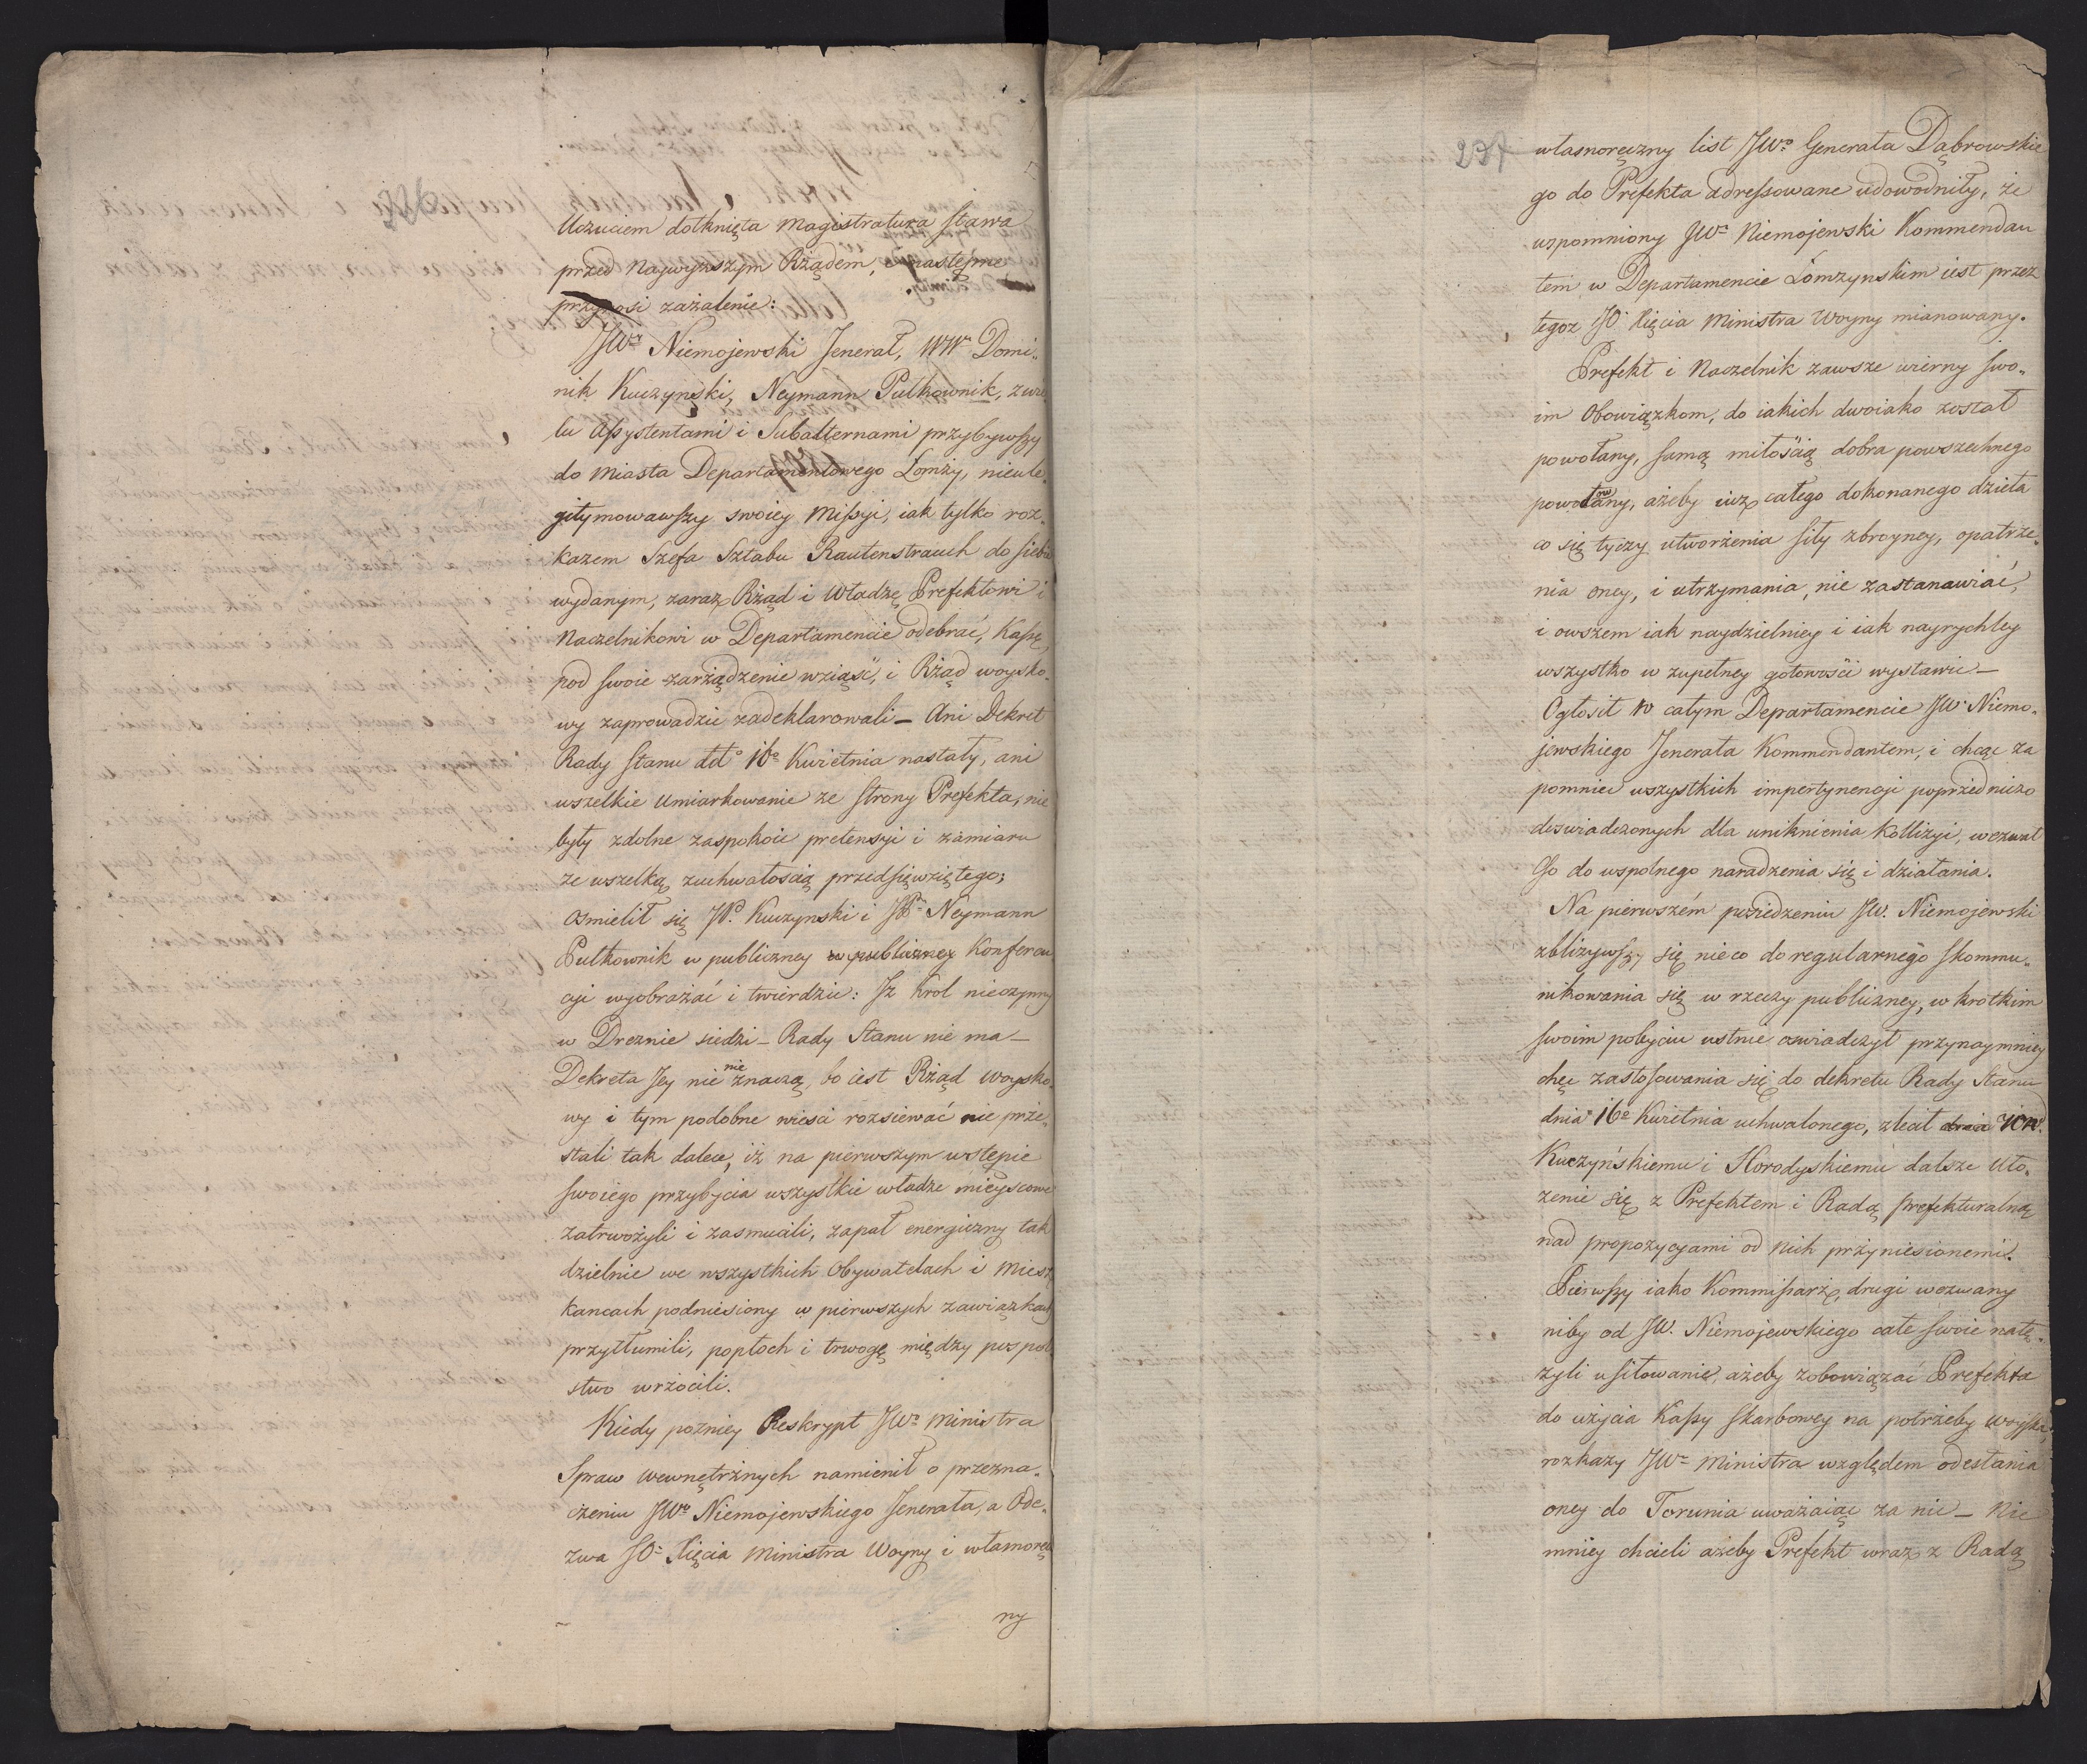 Uczuciem dotknięta Magistratura stawa
przed Naywyższym Rządem, i następne
przynosi zażalenie:
JWny Niemojewski Jenerał, WWni Domi„
nik Kuczynski, Neymann Pułkownik, z wie„
lu Assystentami i Subalternami przybywszy
do Miasta Departamentowego Łomży, nieule„
gitymowawszy swoiey Missyi, iak tylko roz„
kazem Szefa Sztabu Rautenstrauch do siebie
wydanym, zaraz Rząd i Władzę Prefektowi i
Naczelnikowi w Departamencie odebrać, Kassę,
pod swoie zarządzenie wziąść, i Rząd woysko„
wy zaprowadzić zadeklarowali — Ani Dekret
Rady Stanu dtto 16o Kwietnia nastały, ani
wszelkie umiarkowanie ze strony Prefekta, nie
były zdolne zaspokoić pretensyi i zamiaru
ze wszelką zuchwałością przedsięwziętego;
Osmielił się JP. Kuczynski i JP. Neymann
Pułkownik w publiczney w publiczney Konferen
cyi wyobrażać i twierdzić: Jż Krol nieczynny
w Dreznie siedzi — Rady Stanu nie ma —
Dekreta Jey nic nie znaczą, bo iest Rząd woysko„
wy i tym podobne wieści rozsiewać nie prze„
stali tak dalece, iż na pierwszym wstępie
swoiego przybycia wszystkie władze mieyscowe
zatrwożyli i zasmucili, zapał energiczny tak
dzielnie we wszystkich Obywatelach i Miesz
kańcach podniesiony w pierwszych zawiązkach
przytłumili, popłoch i trwogę między pospol
stwo wrzócili.
Kiedy pozniey Reskrypt JWo Ministra
Spraw Wewnętrznych namienił o przezna„
czeniu JWo Niemojewskiego Jenerała, a Ode„
zwa JO. Xięcia Ministra Woyny i własnoręcz
ny
237
własnoręczny list JWo Generała Dąbrowskie
go do Prefekta adressowane udowodniły, że
wspomniony JWny Niemojewski Kommendan
tem w Departamencie Łomzynskim iest przez
tegoz JO. Xięcia Ministra Woyny mianowany.
Prefekt i Naczelnik zawsze wierny swo„
im Obowiązkom, do iakich dwoiako został
powołany, samą miłością dobra powszechnego
powodowany, ażeby iuż całego dokonanego dzieła
co się tyczy utworzenia siły zbroyney, opatrze„
nia oney, i utrzymania, nie zastanawiać,
i owszem iak naydzielniey i iak nayrychley
wszystko w zupełney gotowości wystawić —
Ogłosił w całym Departamencie JW. Niemo„
jewskiego Jenerała Kommendantem, i chcąc za
pomnieć wszystkich impertynencji poprzedniczo
doswiadczonych dla uniknienia Kollizyi, wezwał
Go do wspolnego naradzenia się i działania.
Na pierwszém posiedzeniu JW. Niemojewski
zbliżywszy się nieco do regularnego skommu„
nikowania się w rzeczy publiczney, w krotkim
swoim pobyciu ustnie oswiadczył przynaymniey
chęć zastosowania się do dekretu Rady Stanu
dnia 16o Kwietnia uchwalonego, zlecił dnia
Kuczyńskiemu i Horodyskiemu dalsze uło„
zenie się z Prefektem i Radą Prefekturalną
nad propozycyami od Nich przyniesionemi.
Pierwszy iako Kommissarz, drugi wezwany
niby od JW. Niemojewskiego całe swoie natę„
żyli usiłowanie, ażeby zobowiązać Prefekta
do użycia Kassy Skarbowey na potrzeby woyska,
rozkazy JWo Ministra względem odesłania
oney do Torunia uważaiąc za nic — Nie
mniey chcieli ażeby Prefekt wraz z Radą